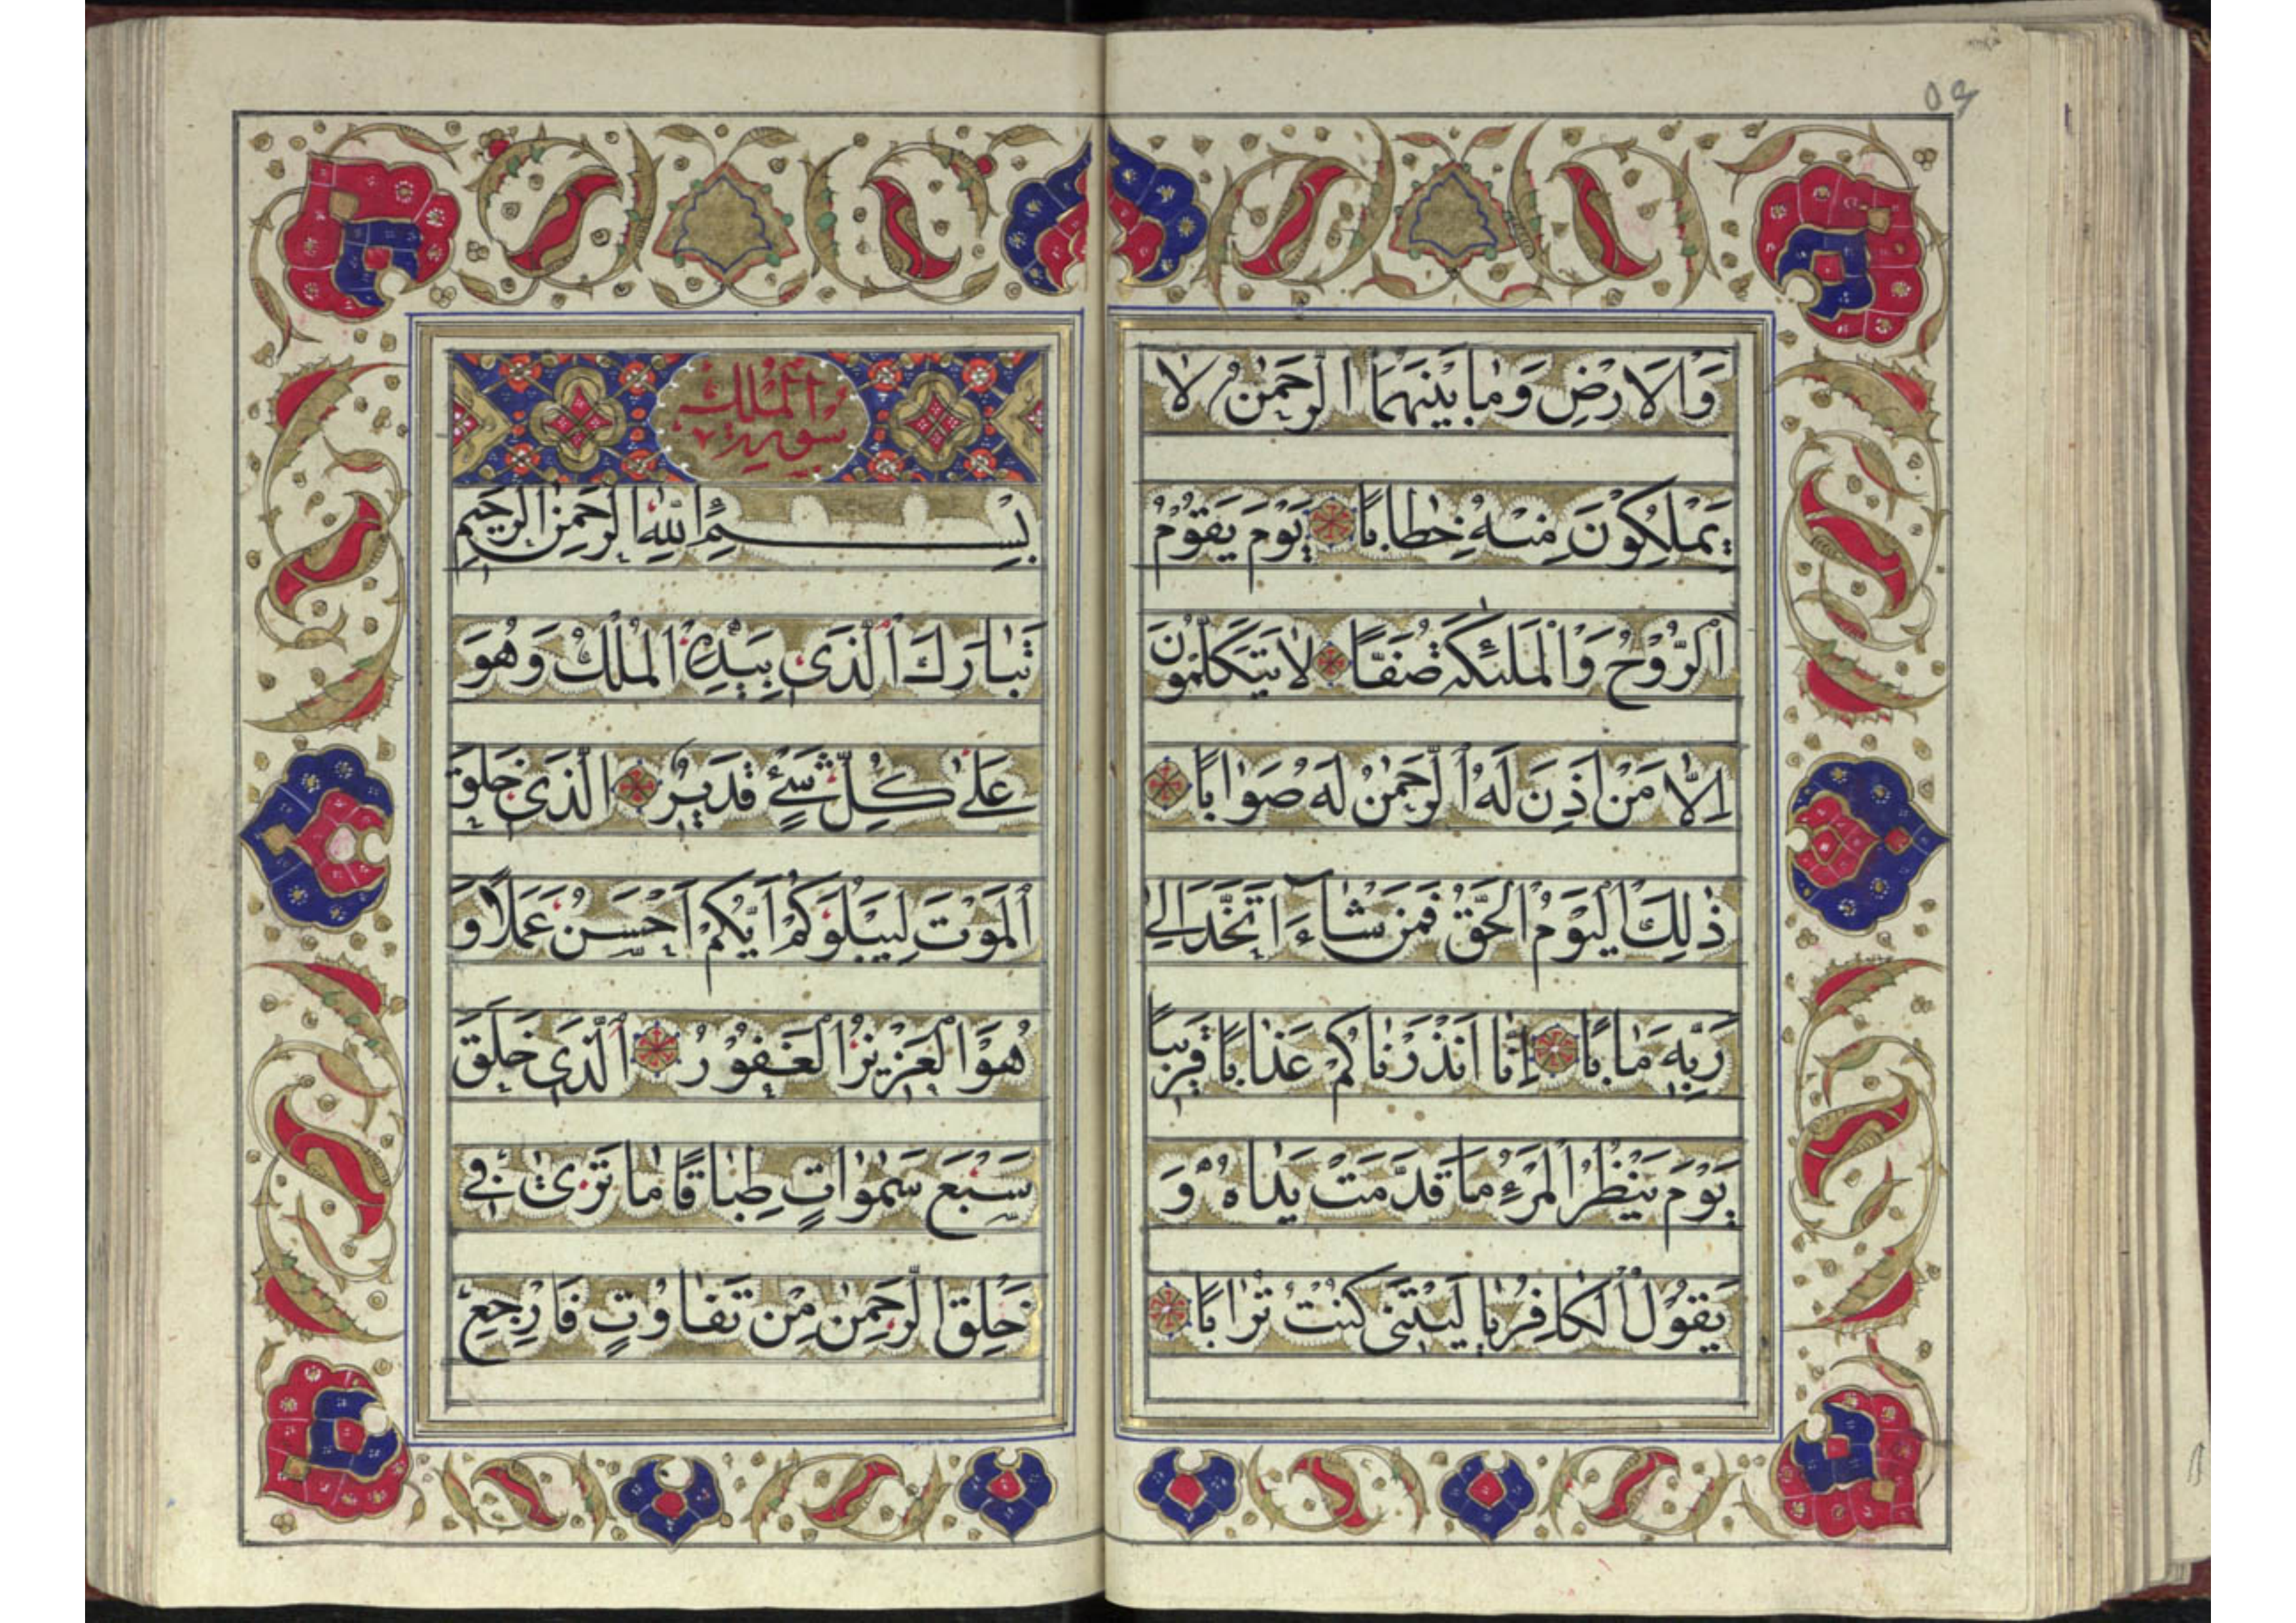 ٥٩
وَالاَرْضِ وَمٰا بَيْنَهُمَا الرَّحْمٰنُ لا
يَمْلِكُوْنَ مِنْهُ خِطاباً يَوْمَ يَقُوْمُ
الرُّوْحُ وَالْمَلئكَةُ صَفّاً لاٰ يَتَكَلَّمُوْنَ
اِلاّٰ مَنْ اَذِنَ لَهُ الرَّحْمٰنُ لَهُ صَوٰاباً
ذٰلِكَ الْيَوْمُ الْحَقُّ فَمَنْ شٰاءَ اتَّخَذَ اِلىٰ
رَبِّهِ مٰاباً اِنّٰا اَنْذَرْنٰاكُمْ عَذٰاباً قَرِيباً
يَوْمَ يَنْظُرُ الْمَرْءُ مٰا قَدَّمَتْ يَدٰاهُ وَ
يَقُوْلُ الْكٰافِرُ يٰا لَيْتَنى كُنْتُ تُرٰاباً
سورة الْمُلْك
بِسْمِ اللّٰهِ الرَّحْمٰنِ الرَّحِيمِ
تَبٰارَكَ الَّذى بِيَدِهِ الْمُلْكُ وَهُوَ
عَلىٰ كُلِّ شَىْءٍ قَدِيرٌ الَّذى خَلَقَ
الْمَوْتَ لِيَبْلُوَكُمْ اَيُّكُمْ اَحْسَنُ عَمَلاً وَ
هُوَ الْعَزِيزُ الْغَفُوْرُ الَّذى خَلَقَ
سَبْعَ سَمٰوٰاتٍ طِبٰاقاً مٰا تَرىٰ فى
خَلْقِ الرَّحْمٰنِ مِنْ تَفٰاوُتٍ فَارْجِعِ